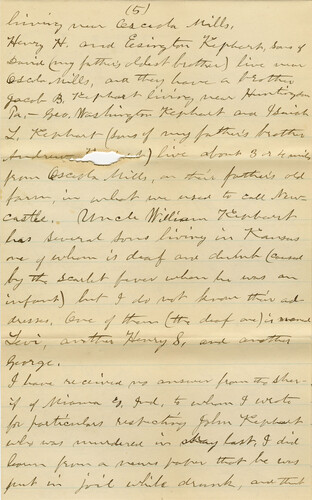 (5)
living near Osceola Mills.
Henry H. and Lexington Kephart, sons of
David (my father's oldest brother) live near
Osceola Mills, and they have a brother
Jacob B. Kephart living near Huntingdon
Pa. — Geo. Washington Kephart and Isaiah
L. Kephart (sons of my father's brother
Andrew) live about 3 or 4 miles
from Osceola Mills, on their father's old
farm, in what we used to call New-
castle. Uncle William Kephart
has several sons living in Kansas
one of whom is deaf and dumb (caused
by the scarlet fever when he was an
infant) but I do not know their ad-
dresses. One of them (the deaf one) is named
Levi, another Henry S, and another
George.
I have received no answer from the sher-
if of Miama Co, Ind, to whom I wrote
for particulars respecting John Kephart
who was murdered in May last. I did
learn from a news paper that he was
put in jail while drunk, and that